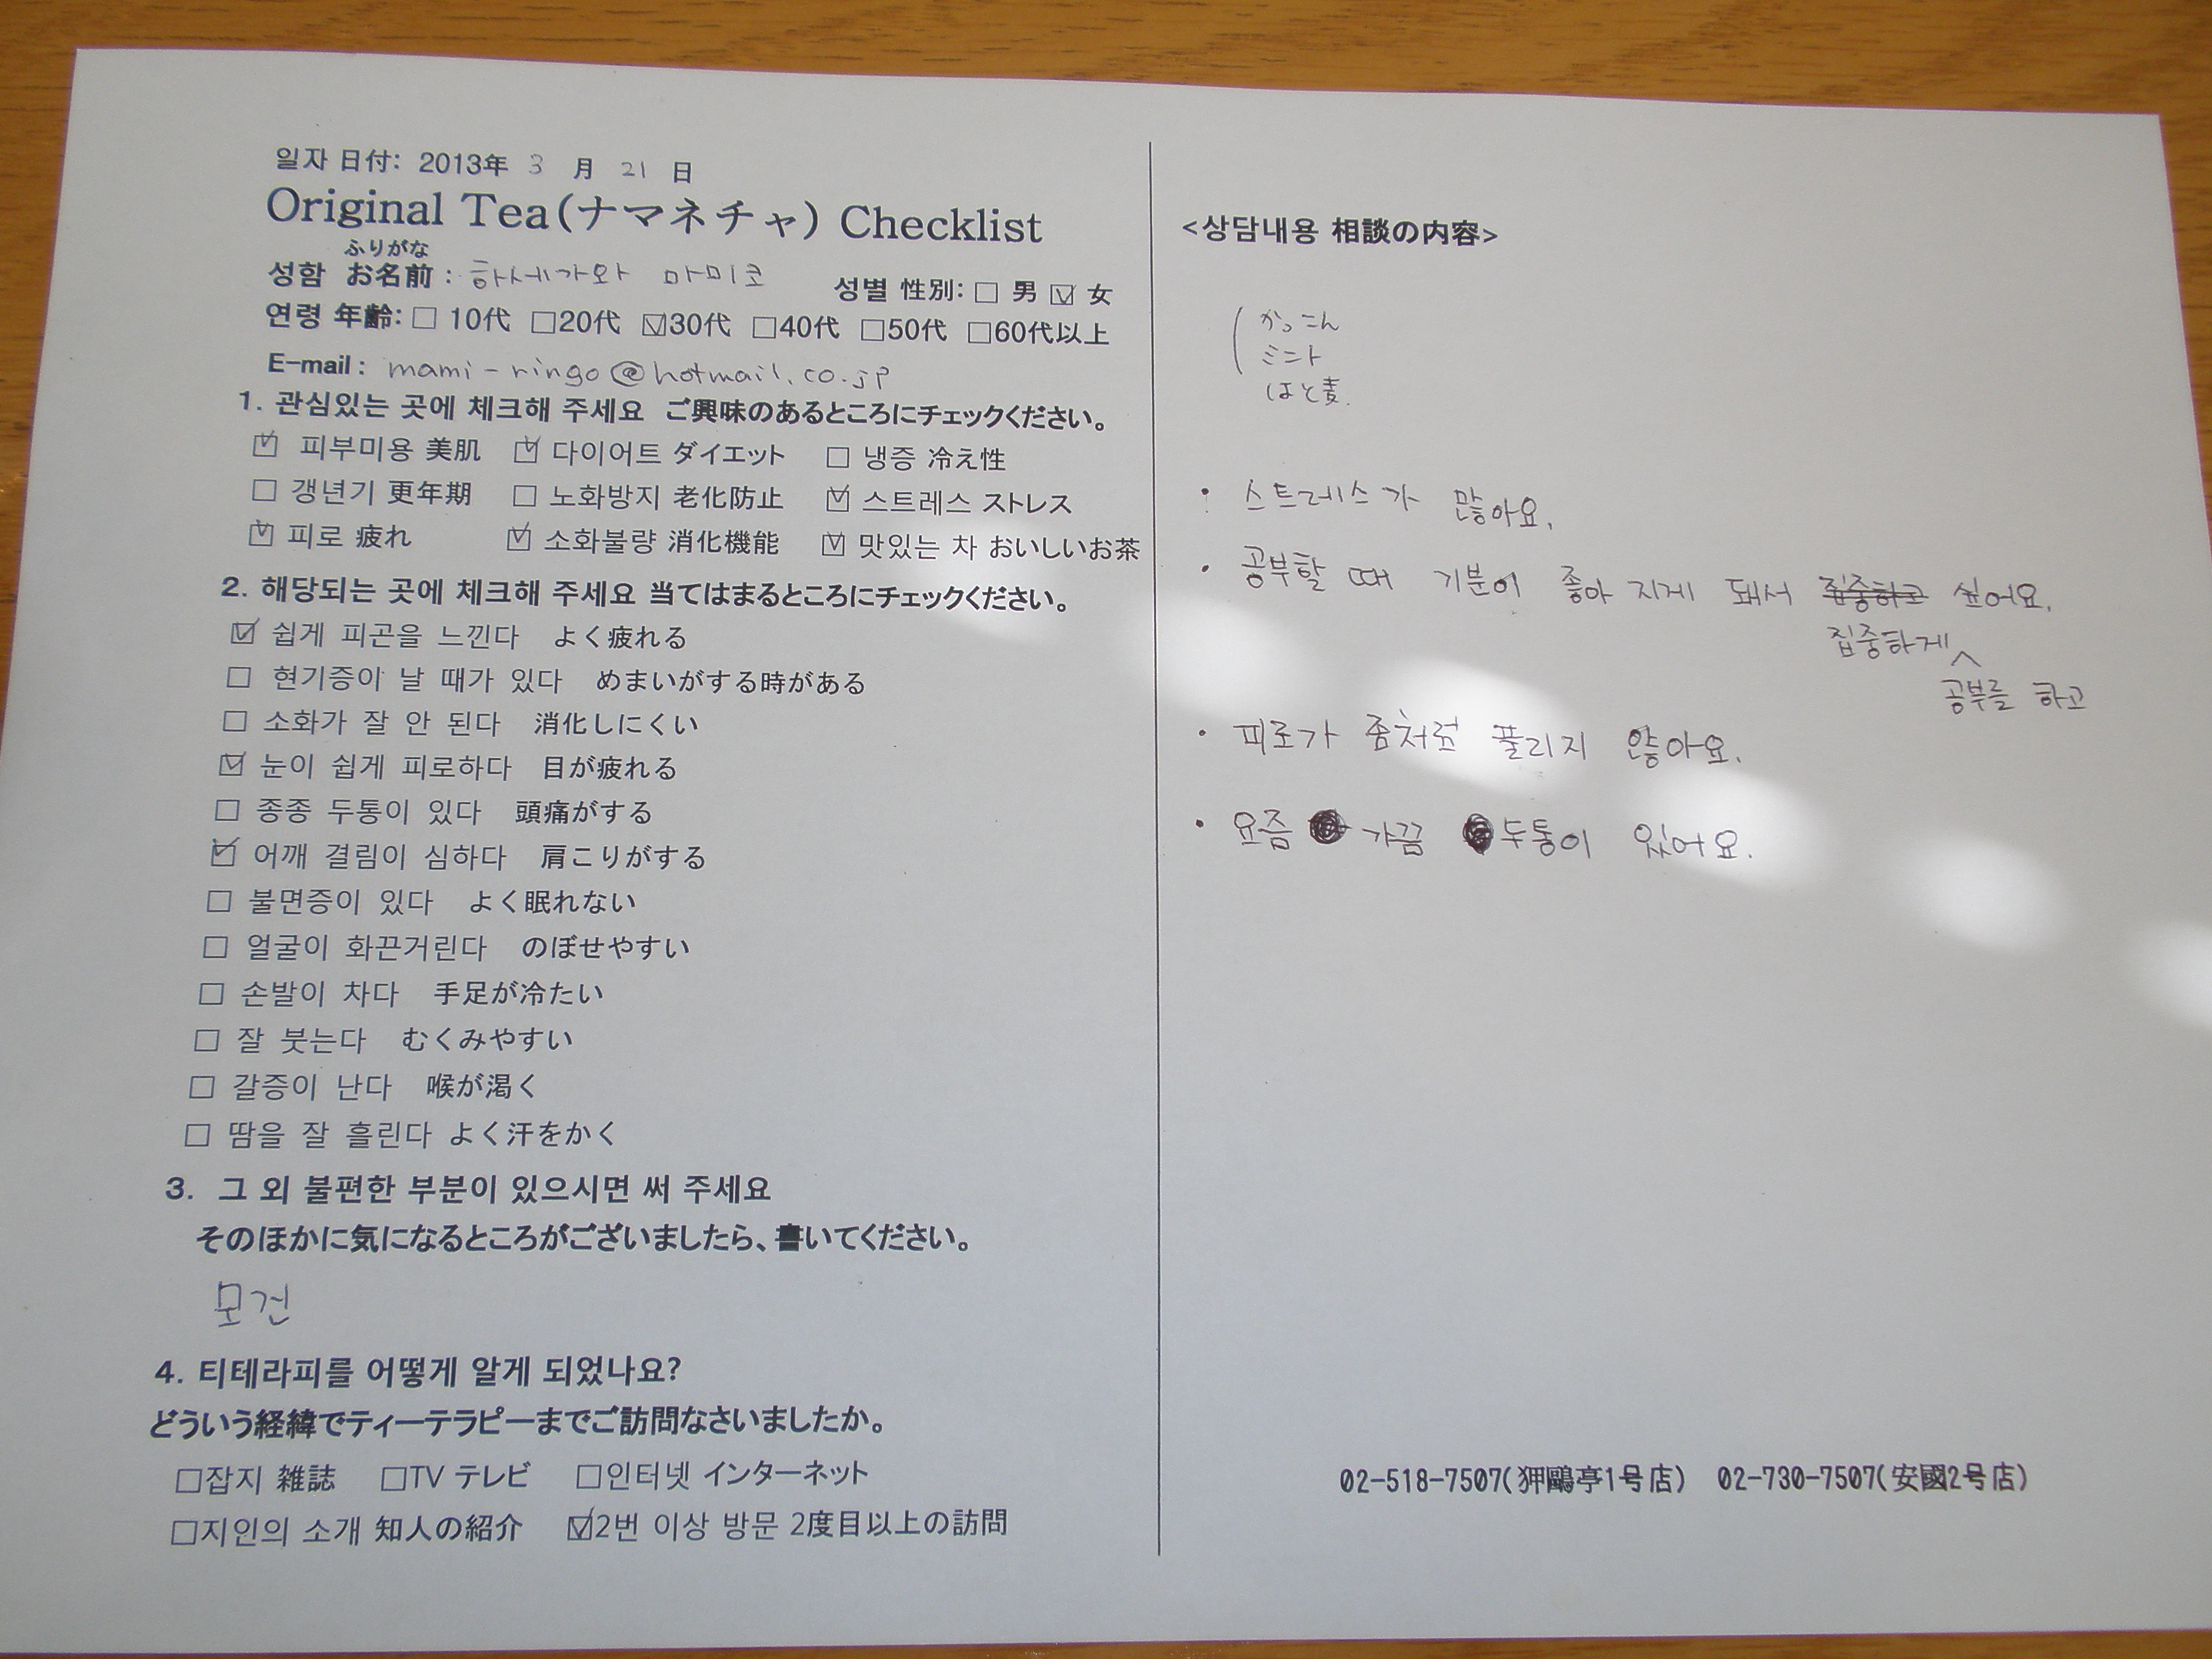 일자 日付: 2013年 3 月 21 日
Original Tea(ナマネチャ) Checklist
ふりがな
성함 お名前 : 하세가와 마미코 성별 性別: □ 男 ☑ 女
연령 年齢: □ 10代 □20代 ☑30代 □40代 □50代 □60代以上
E-mail : mami-ringo@hotmail.co.jp
1. 관심있는 곳에 체크해 주세요 ご興味のあるところにチェックください。
☑ 피부미용 美肌 ☑ 다이어트 ダイエット □ 냉증 冷え性
□ 갱년기 更年期 □ 노화방지 老化防止 ☑ 스트레스 ストレス
☑ 피로 疲れ ☑ 소화불량 消化機能 ☑ 맛있는 차 おいしいお茶
2. 해당되는 곳에 체크해 주세요 当てはまるところにチェックください。
☑ 쉽게 피곤을 느낀다 よく疲れる
□ 현기증이 날 때가 있다 めまいがする時がある
□ 소화가 잘 안 된다 消化しにくい
☑ 눈이 쉽게 피로하다 目が疲れる
□ 종종 두통이 있다 頭痛がする
☑ 어깨 결림이 심하다 肩こりがする
□ 불면증이 있다 よく眠れない
□ 얼굴이 화끈거린다 のぼせやすい
□ 손발이 차다 手足が冷たい
□ 잘 붓는다 むくみやすい
□ 갈증이 난다 喉が渇く
□ 땀을 잘 흘린다 よく汗をかく
3. 그 외 불편한 부분이 있으시면 써 주세요
そのほかに気になるところがございましたら、書いてください。
모건
4. 티테라피를 어떻게 알게 되었나요?
どういう経緯でティーテラピーまでご訪問なさいましたか。
□잡지 雑誌 □TV テレビ □인터넷 インターネット
□지인의 소개 知人の紹介 ☑2번 이상 방문 2度目以上の訪問
<상담내용 相談の内容>
かっこん
ミント
はと麦.
• 스트레스가 많아요.
• 공부할 때 기분이 좋아 지게 돼서 집중하고 싶어요.
집중하게
공부를 하고
• 피로가 좀처럼 풀리지 않아요.
• 요즘 가끔 두통이 있어요.
02-518-7507(狎鷗亭1号店) 02-730-7507(安國2号店)